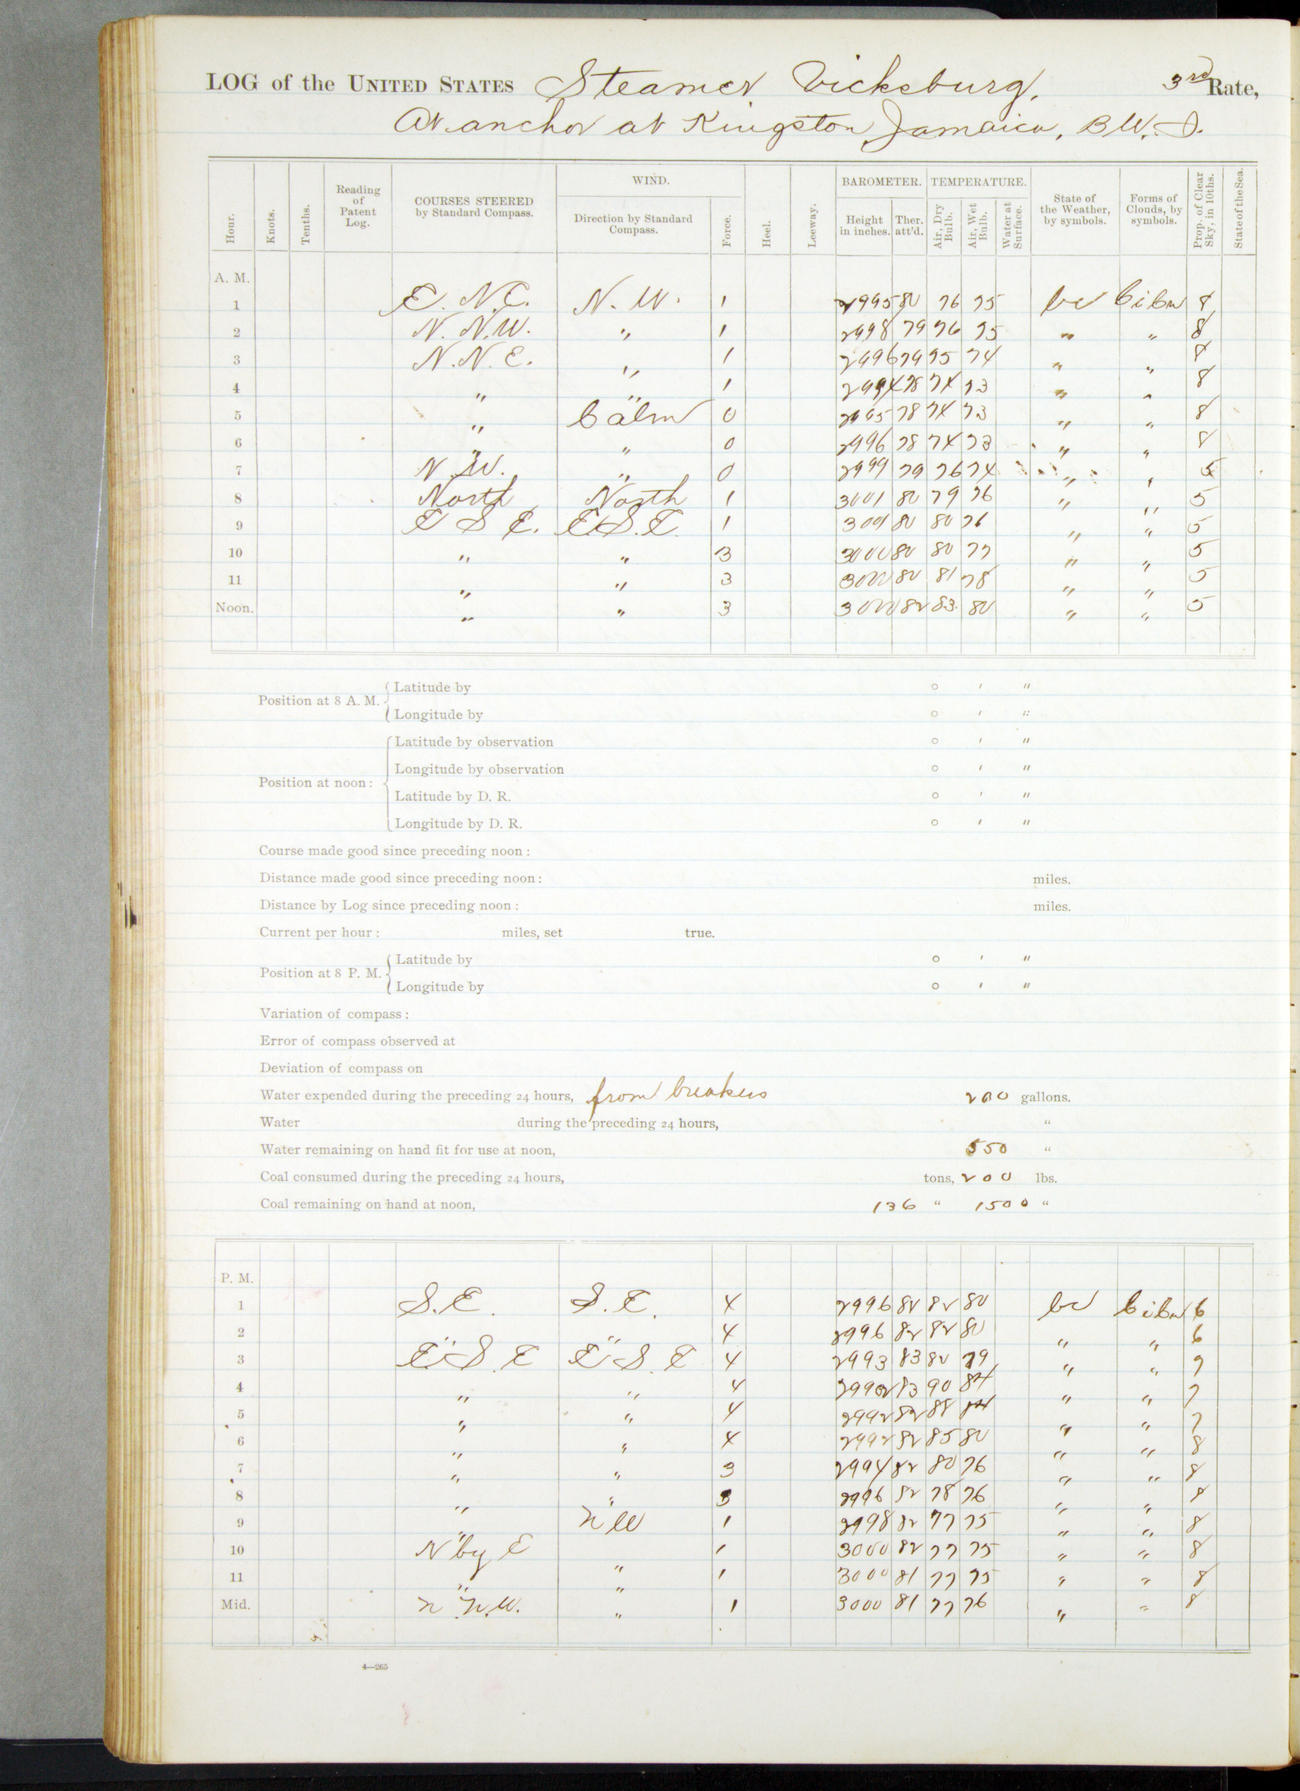 LOG of the UNITED STATES Steamer Vicksburg, 3rd Rate,
At anchor at Kingston, Jamaica, B.W.I.
Hour. Knots. Tenths. Reading of Patent Log. COURSES STEERED by Standard Compass. WIND. Direction by Standard Compass. Force. Heel. Leeway. BAROMETER. Height in inches. Ther. att'd. TEMPERATURE. Air, Dry Bulb. Air, Wet Bulb. Water at Surface. State of the Weather, by symbols. Forms of Clouds, by symbols. Prop. of Clear Sky, in 10ths. State of the Sea.
A. M.
1 E. N. E. N. W. 1 2995 80 76 75 bc Ci Cu 8
2 N. N. W. " 1 2998 79 76 75 " " 8
3 N. N. E. " 1 2996 79 75 74 " " 8
4 " " 1 2994 78 74 73 " " 8
5 " Calm 0 2995 78 74 73 " " 8
6 " " 0 2996 78 74 73 " " 8
7 N. W. " 0 2999 79 76 74 " " 5
8 North North 1 3001 80 79 76 " " 5
9 E S E. E S. E. 1 3001 80 80 76 " " 5
10 " " 3 3000 80 80 77 " " 5
11 " " 3 3000 80 81 78 " " 5
Noon. " " 3 3000 82 83 80 " " 5
Position at 8 A. M. Latitude by ° ' "
Longitude by ° ' "
Position at noon: Latitude by observation ° ' "
Longitude by observation ° ' "
Latitude by D. R. ° ' "
Longitude by D. R. ° ' "
Course made good since preceding noon:
Distance made good since preceding noon: miles.
Distance by Log since preceding noon: miles.
Current per hour: miles, set true.
Position at 8 P. M. Latitude by ° ' "
Longitude by ° ' "
Variation of compass:
Error of compass observed at
Deviation of compass on
Water expended during the preceding 24 hours, from breakers 200 gallons.
Water during the preceding 24 hours, "
Water remaining on hand fit for use at noon, 550 "
Coal consumed during the preceding 24 hours, tons, 200 lbs.
Coal remaining on hand at noon, 136 " 1500 "
P. M.
1 S. E. S. E. 4 2996 82 82 80 bc Ci Cu 6
2 " " 4 2996 82 82 80 " " 6
3 E. S. E E S. E 4 2993 83 82 79 " " 7
4 " " 4 2990 83 90 84 " " 7
5 " " 4 2992 82 88 84 " " 7
6 " " 4 2992 82 85 80 " " 8
7 " " 3 2994 82 80 76 " " 8
8 " " 3 2996 82 78 76 " " 8
9 " N W 1 2998 82 77 75 " " 8
10 N by E " 1 3000 82 77 75 " " 8
11 " " 1 3000 81 77 75 " " 8
Mid. N. N. W. " 1 3000 81 77 76 " " 8
4—265